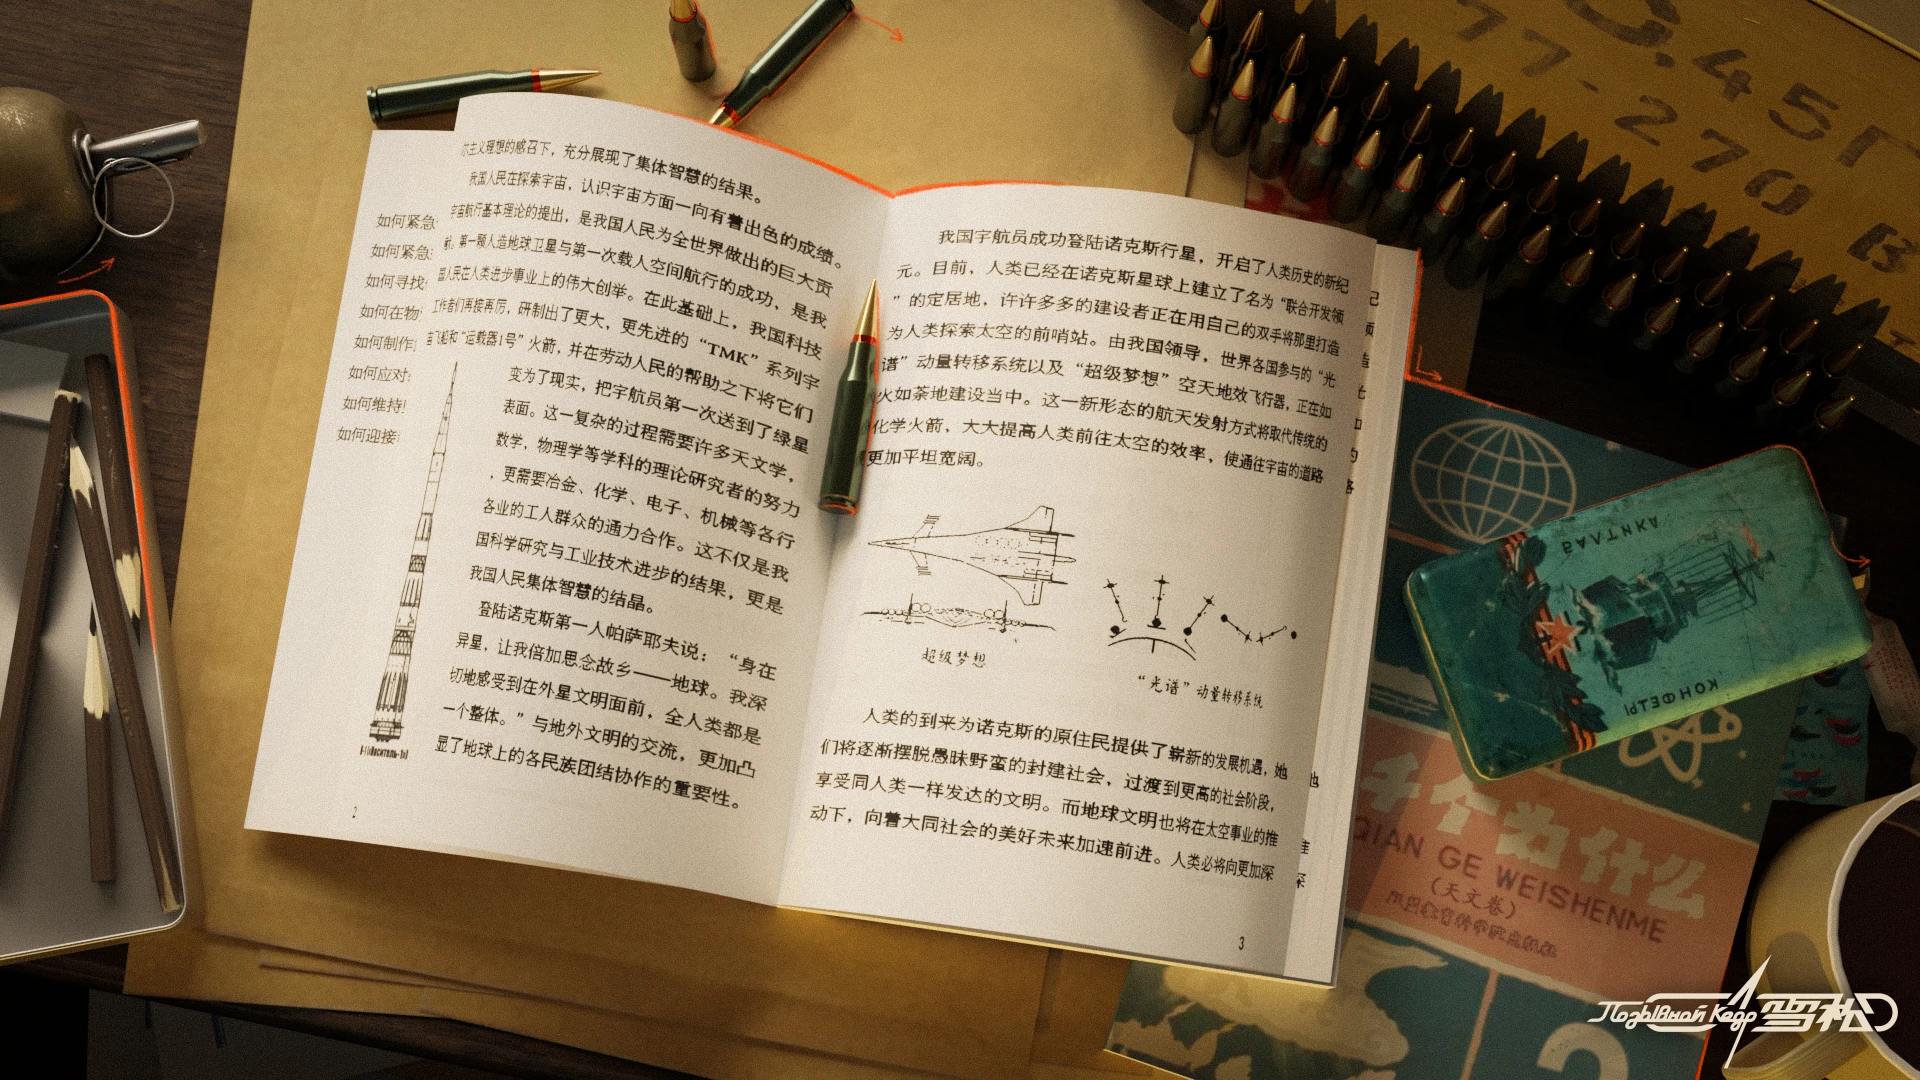 如何紧急
如何紧急
如何寻找
如何在物
如何制作
如何应对
如何维持
如何迎接
尔主义理想的感召下，充分展现了集体智慧的结果。
我国人民在探索宇宙，认识宇宙方面一向有着出色的成绩。
宇宙航行基本理论的提出，是我国人民为全世界做出的巨大贡
献。第一颗人造地球卫星与第一次载人空间航行的成功，是我
国人民在人类进步事业上的伟大创举。在此基础上，我国科技
工作者们再接再厉，研制出了更大，更先进的“TMK”系列宇
宙飞船和“运载器1号”火箭，并在劳动人民的帮助之下将它们
变为了现实，把宇航员第一次送到了绿星
表面。这一复杂的过程需要许多天文学，
数学，物理学等学科的理论研究者的努力
，更需要冶金、化学、电子、机械等各行
各业的工人群众的通力合作。这不仅是我
国科学研究与工业技术进步的结果，更是
我国人民集体智慧的结晶。
登陆诺克斯第一人帕萨耶夫说：“身在
异星，让我倍加思念故乡——地球。我深
切地感受到在外星文明面前，全人类都是
一个整体。”与地外文明的交流，更加凸
显了地球上的各民族团结协作的重要性。
2
我国宇航员成功登陆诺克斯行星，开启了人类历史的新纪
元。目前，人类已经在诺克斯星球上建立了名为“联合开发领
”的定居地，许许多多的建设者正在用自己的双手将那里打造
为人类探索太空的前哨站。由我国领导，世界各国参与的“光
谱”动量转移系统以及“超级梦想”空天地效飞行器，正在如
火如荼地建设当中。这一新形态的航天发射方式将取代传统的
化学火箭，大大提高人类前往太空的效率，使通往宇宙的道路
更加平坦宽阔。
超级梦想
“光谱”动量转移系统
人类的到来为诺克斯的原住民提供了崭新的发展机遇，她
们将逐渐摆脱愚昧野蛮的封建社会，过渡到更高的社会阶段，
享受同人类一样发达的文明。而地球文明也将在太空事业的推
动下，向着大同社会的美好未来加速前进。人类必将向更加深
3
5,45Г
77-270
В
АНТЛАЗ
КОНФЕТЫ
千个为什么
QIAN GE WEISHENME
（天文卷）
2
Позывной Кедр 雪松